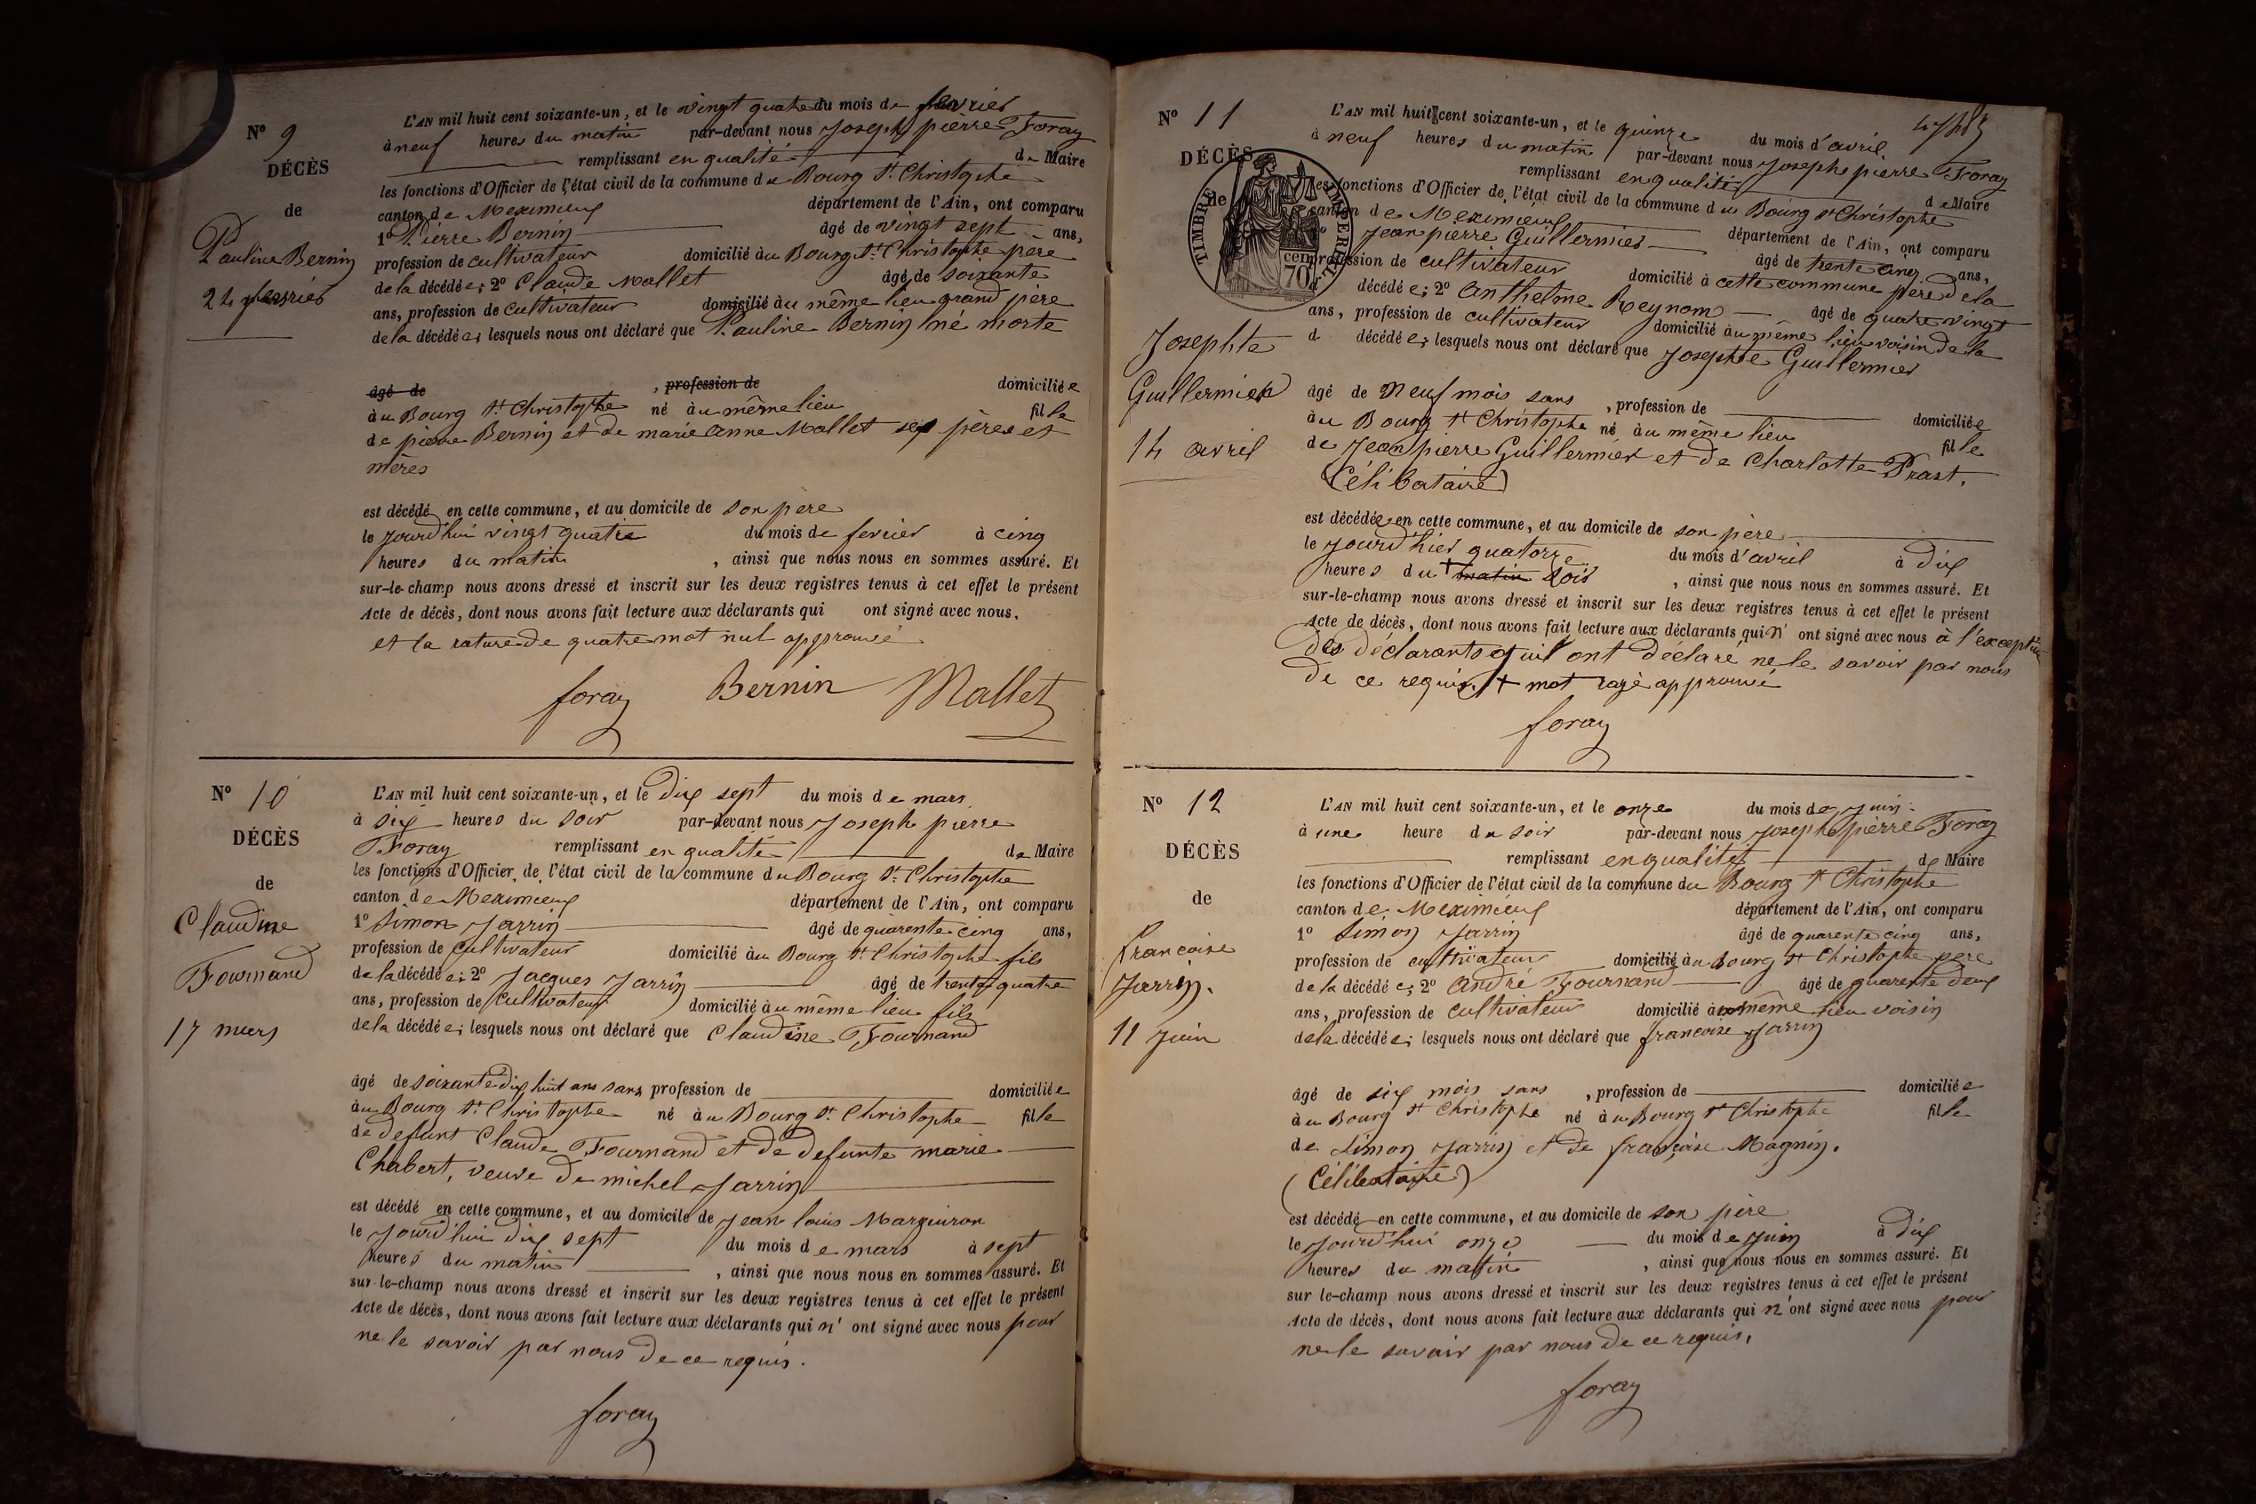 N° 9
DÉCÈS
de
Pauline Bernin
24 fevrier
L'AN mil huit cent soixante-un, et le vingt quatre du mois de fevrier
à neuf heures du matin par-devant nous Joseph pierre Foray
remplissant en qualité de Maire
les fonctions d'Officier de l'état civil de la commune du Bourg St Christophe
canton de Meximieux département de l'Ain, ont comparu
1° Pierre Bernin âgé de vingt sept ans,
profession de cultivateur domicilié au Bourg St Christophe père
de la décédée; 2° Claude Mallet âgé de soixante
ans, profession de cultivateur domicilié au même lieu grand père
de la décédée; lesquels nous ont déclaré que Pauline Bernin né morte
âgé de , profession de domiciliée
au Bourg St Christophe né au même lieu fille
de pierre Bernin et de marie anne Mallet ses pères et
mères
est décédé en cette commune, et au domicile de son père
le jourd'hui vingt quatre du mois de fevrier à cinq
heures du matin , ainsi que nous nous en sommes assuré. Et
sur-le-champ nous avons dressé et inscrit sur les deux registres tenus à cet effet le présent
Acte de décès, dont nous avons fait lecture aux déclarants qui ont signé avec nous.
et la rature de quatre mot nul approuvé
foray Bernin Mallet
N° 10
DÉCÈS
de
Claudine
Fournand
17 mars
L'AN mil huit cent soixante-un, et le dix sept du mois de mars
à six heures du soir par-devant nous Joseph pierre
Foray remplissant en qualité de Maire
les fonctions d'Officier de l'état civil de la commune du Bourg St Christophe
canton de Meximieux département de l'Ain, ont comparu
1° Simon Jarrin âgé de quarente cinq ans,
profession de cultivateur domicilié au Bourg St Christophe fils
de la décédée; 2° Jacques Jarrin âgé de trente quatre
ans, profession de cultivateur domicilié au même lieu fils
de la décédée; lesquels nous ont déclaré que Claudine Fournand
âgé de soixante dix huit ans sans profession de domiciliée
au Bourg St Christophe né au Bourg St Christophe fille
de defunt Claude Fournand et de defunte marie
Chabert, veuve de michel Jarrin
est décédé en cette commune, et au domicile de Jean louis
le jourd'hui dix sept du mois de mars à sept
heures du matin , ainsi que nous nous en sommes assuré. Et
sur-le-champ nous avons dressé et inscrit sur les deux registres tenus à cet effet le présent
Acte de décès, dont nous avons fait lecture aux déclarants qui n'ont signé avec nous pour
ne le savoir par nous de ce requis.
foray
N° 11
DÉCÈS
de
TIMBRE IMPERIAL
cen
70
Josephte
Guillermier
14 avril
L'AN mil huit cent soixante-un, et le quinze du mois d'avril
à neuf heures du matin par-devant nous Josephe pierre Foray
remplissant en qualité de Maire
les fonctions d'Officier de l'état civil de la commune du Bourg St Christophe
canton de Meximieux département de l'Ain, ont comparu
Jean pierre Guillermier âgé de trente cinq ans,
profession de cultivateur domicilié à cette commune père de la
d décédée; 2° Anthelme Reynom âgé de quatre vingt
ans, profession de cultivateur domicilié au même lieu voisin de la
d décédée; lesquels nous ont déclaré que Josephte Guillermier
âgé de neuf mois sans , profession de domiciliée
au Bourg St Christophe né au même lieu fille
de Jean pierre Guillermier et de Charlotte Prast.
(Célibataire)
est décédée en cette commune, et au domicile de son père
le jourd'hier quatorze du mois d'avril à dix
heures du + matin soir , ainsi que nous nous en sommes assuré. Et
sur-le-champ nous avons dressé et inscrit sur les deux registres tenus à cet effet le présent
Acte de décès, dont nous avons fait lecture aux déclarants qui n'ont signé avec nous à l'exception
des déclarants qui ont déclaré ne le savoir par nous
de ce requis. + mot rayé approuvé
foray
N° 12
DÉCÈS
de
francoise
Jarrin.
11 Juin
L'AN mil huit cent soixante-un, et le onze du mois de Juin
à une heure du soir par-devant nous Joseph pierre Foray
remplissant en qualité de Maire
les fonctions d'Officier de l'état civil de la commune du Bourg St Christophe
canton de Meximieux département de l'Ain, ont comparu
1° Simon Jarrin âgé de quarente cinq ans,
profession de cultivateur domicilié au Bourg St Christophe père
de la décédée; 2° André Fournand âgé de quarente deux
ans, profession de cultivateur domicilié au même lieu voisin
de la décédée; lesquels nous ont déclaré que francoise Jarrin
âgé de six mois sans , profession de domiciliée
au Bourg St Christophe né au Bourg St Christophe fille
de Simon Jarrin et de françoise Magnin.
(Célibataire)
est décédé en cette commune, et au domicile de son père
le jourd'hui onze du mois de Juin à dix
heures du matin , ainsi que nous nous en sommes assuré. Et
sur le-champ nous avons dressé et inscrit sur les deux registres tenus à cet effet le présent
Acte de décès, dont nous avons fait lecture aux déclarants qui n'ont signé avec nous pour
ne le savoir par nous de ce requis.
foray